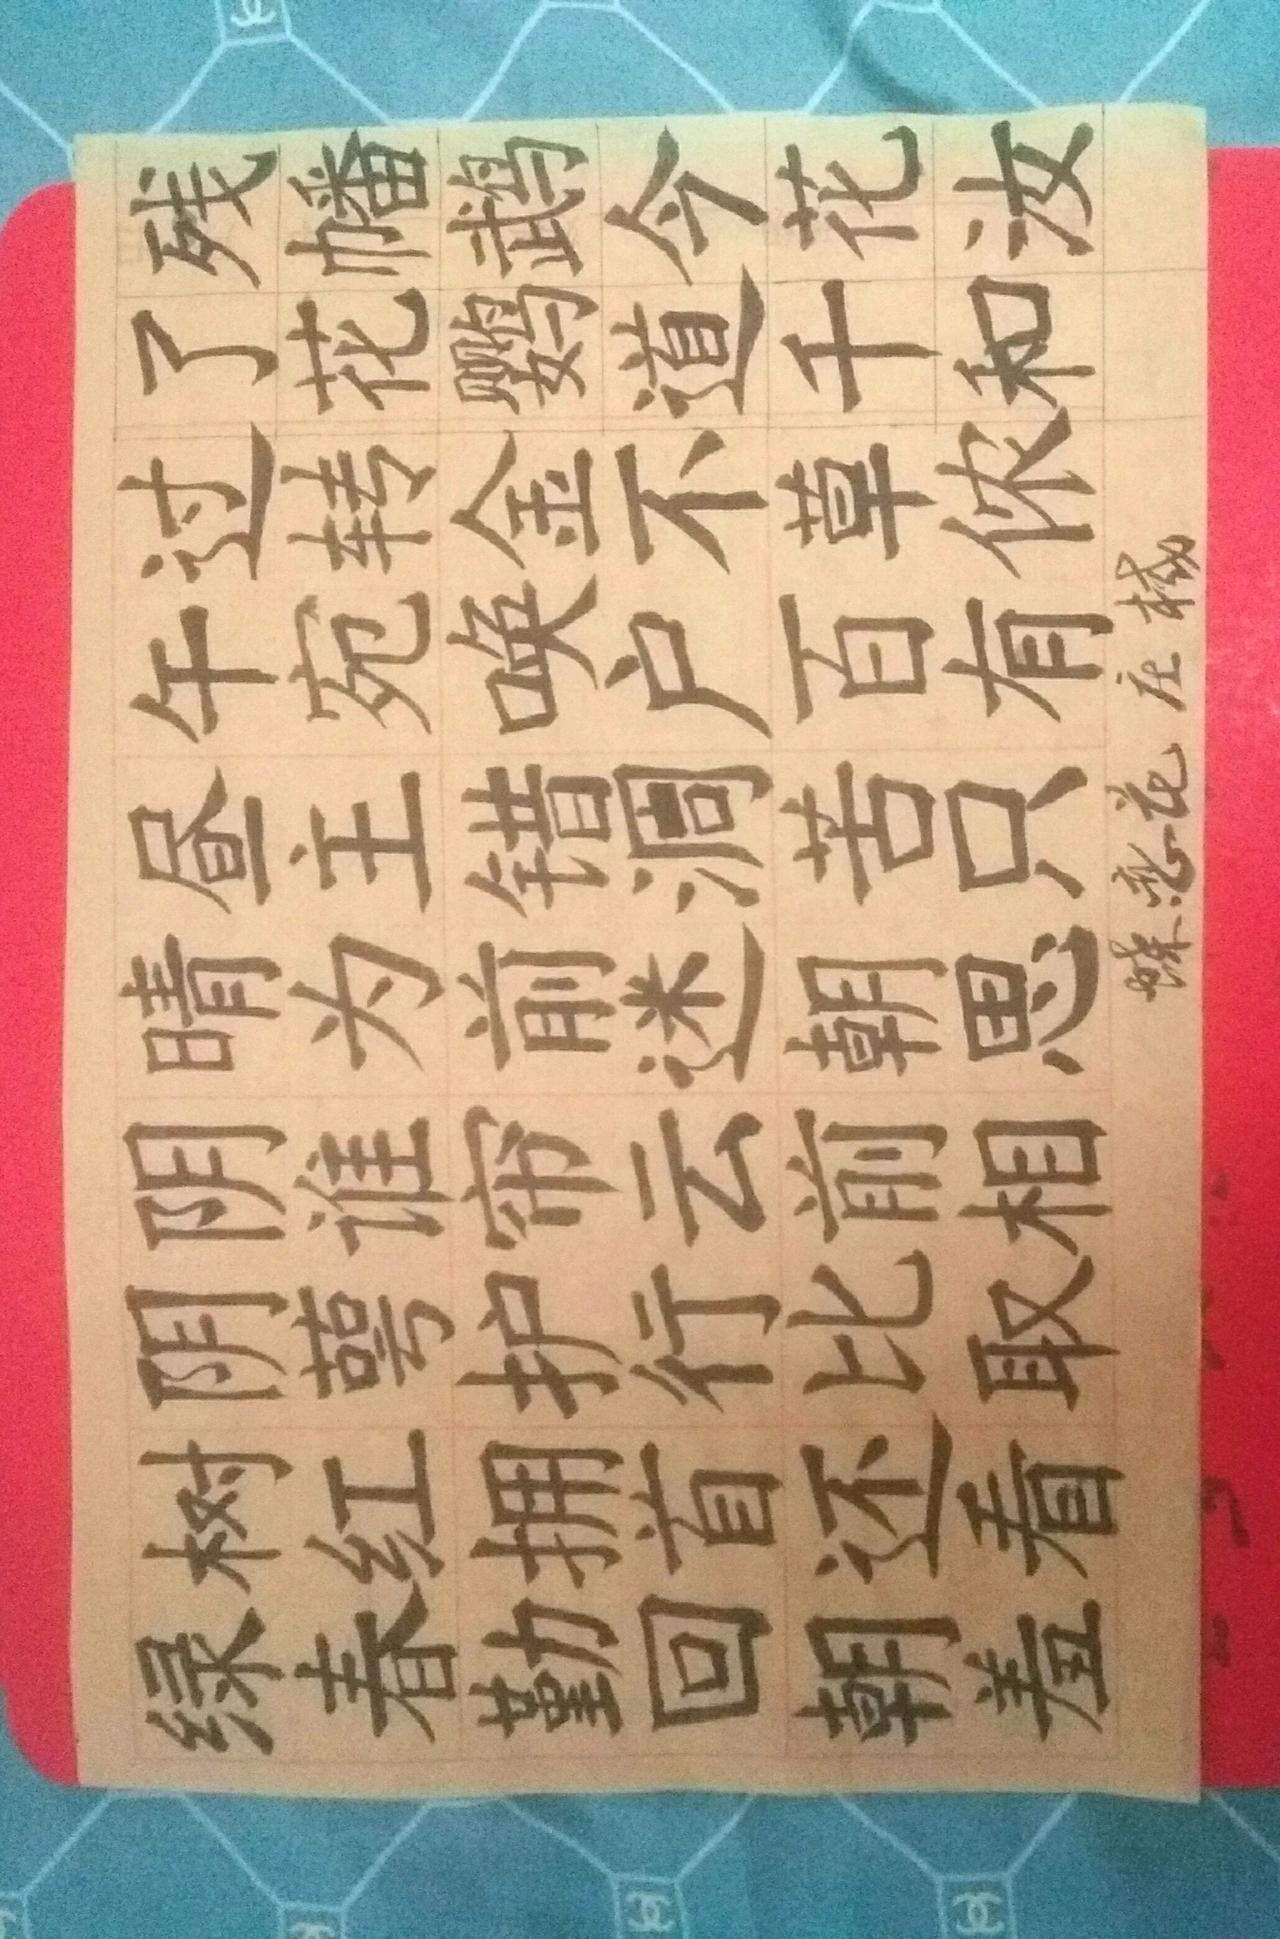 绿树阴阴晴昼午过了残
春红萼谁为主宛转花幡
勤拥护帘前错唤金鹦鹉
回首行云迷洞户不道今
朝还比前朝苦百草千花
羞看取相思只有侬和汝
蝶恋花 庄棫